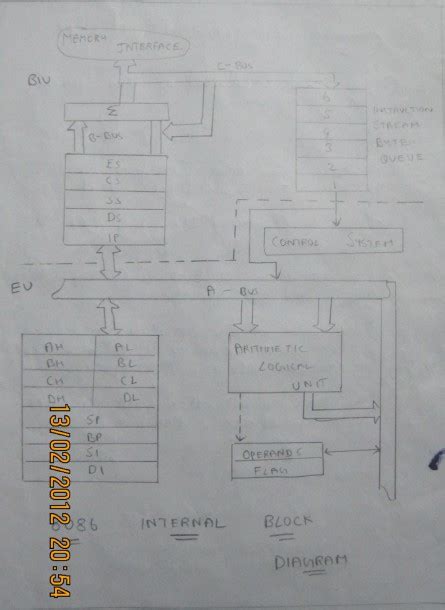 MEMORY
INTERFACE
C-BUS
BIU
Σ
B-BUS
6
5
4
3
2
INSTRUCTION
STREAM
BYTE
QUEUE
ES
CS
SS
DS
IP
CONTROL SYSTEM
EU
A-BUS
AH AL
BH BL
CH CL
DH DL
SP
BP
SI
DI
ARITHMETIC
LOGICAL
UNIT
OPERANDS
FLAG
8086 INTERNAL BLOCK
DIAGRAM
13/02/2012 20:54